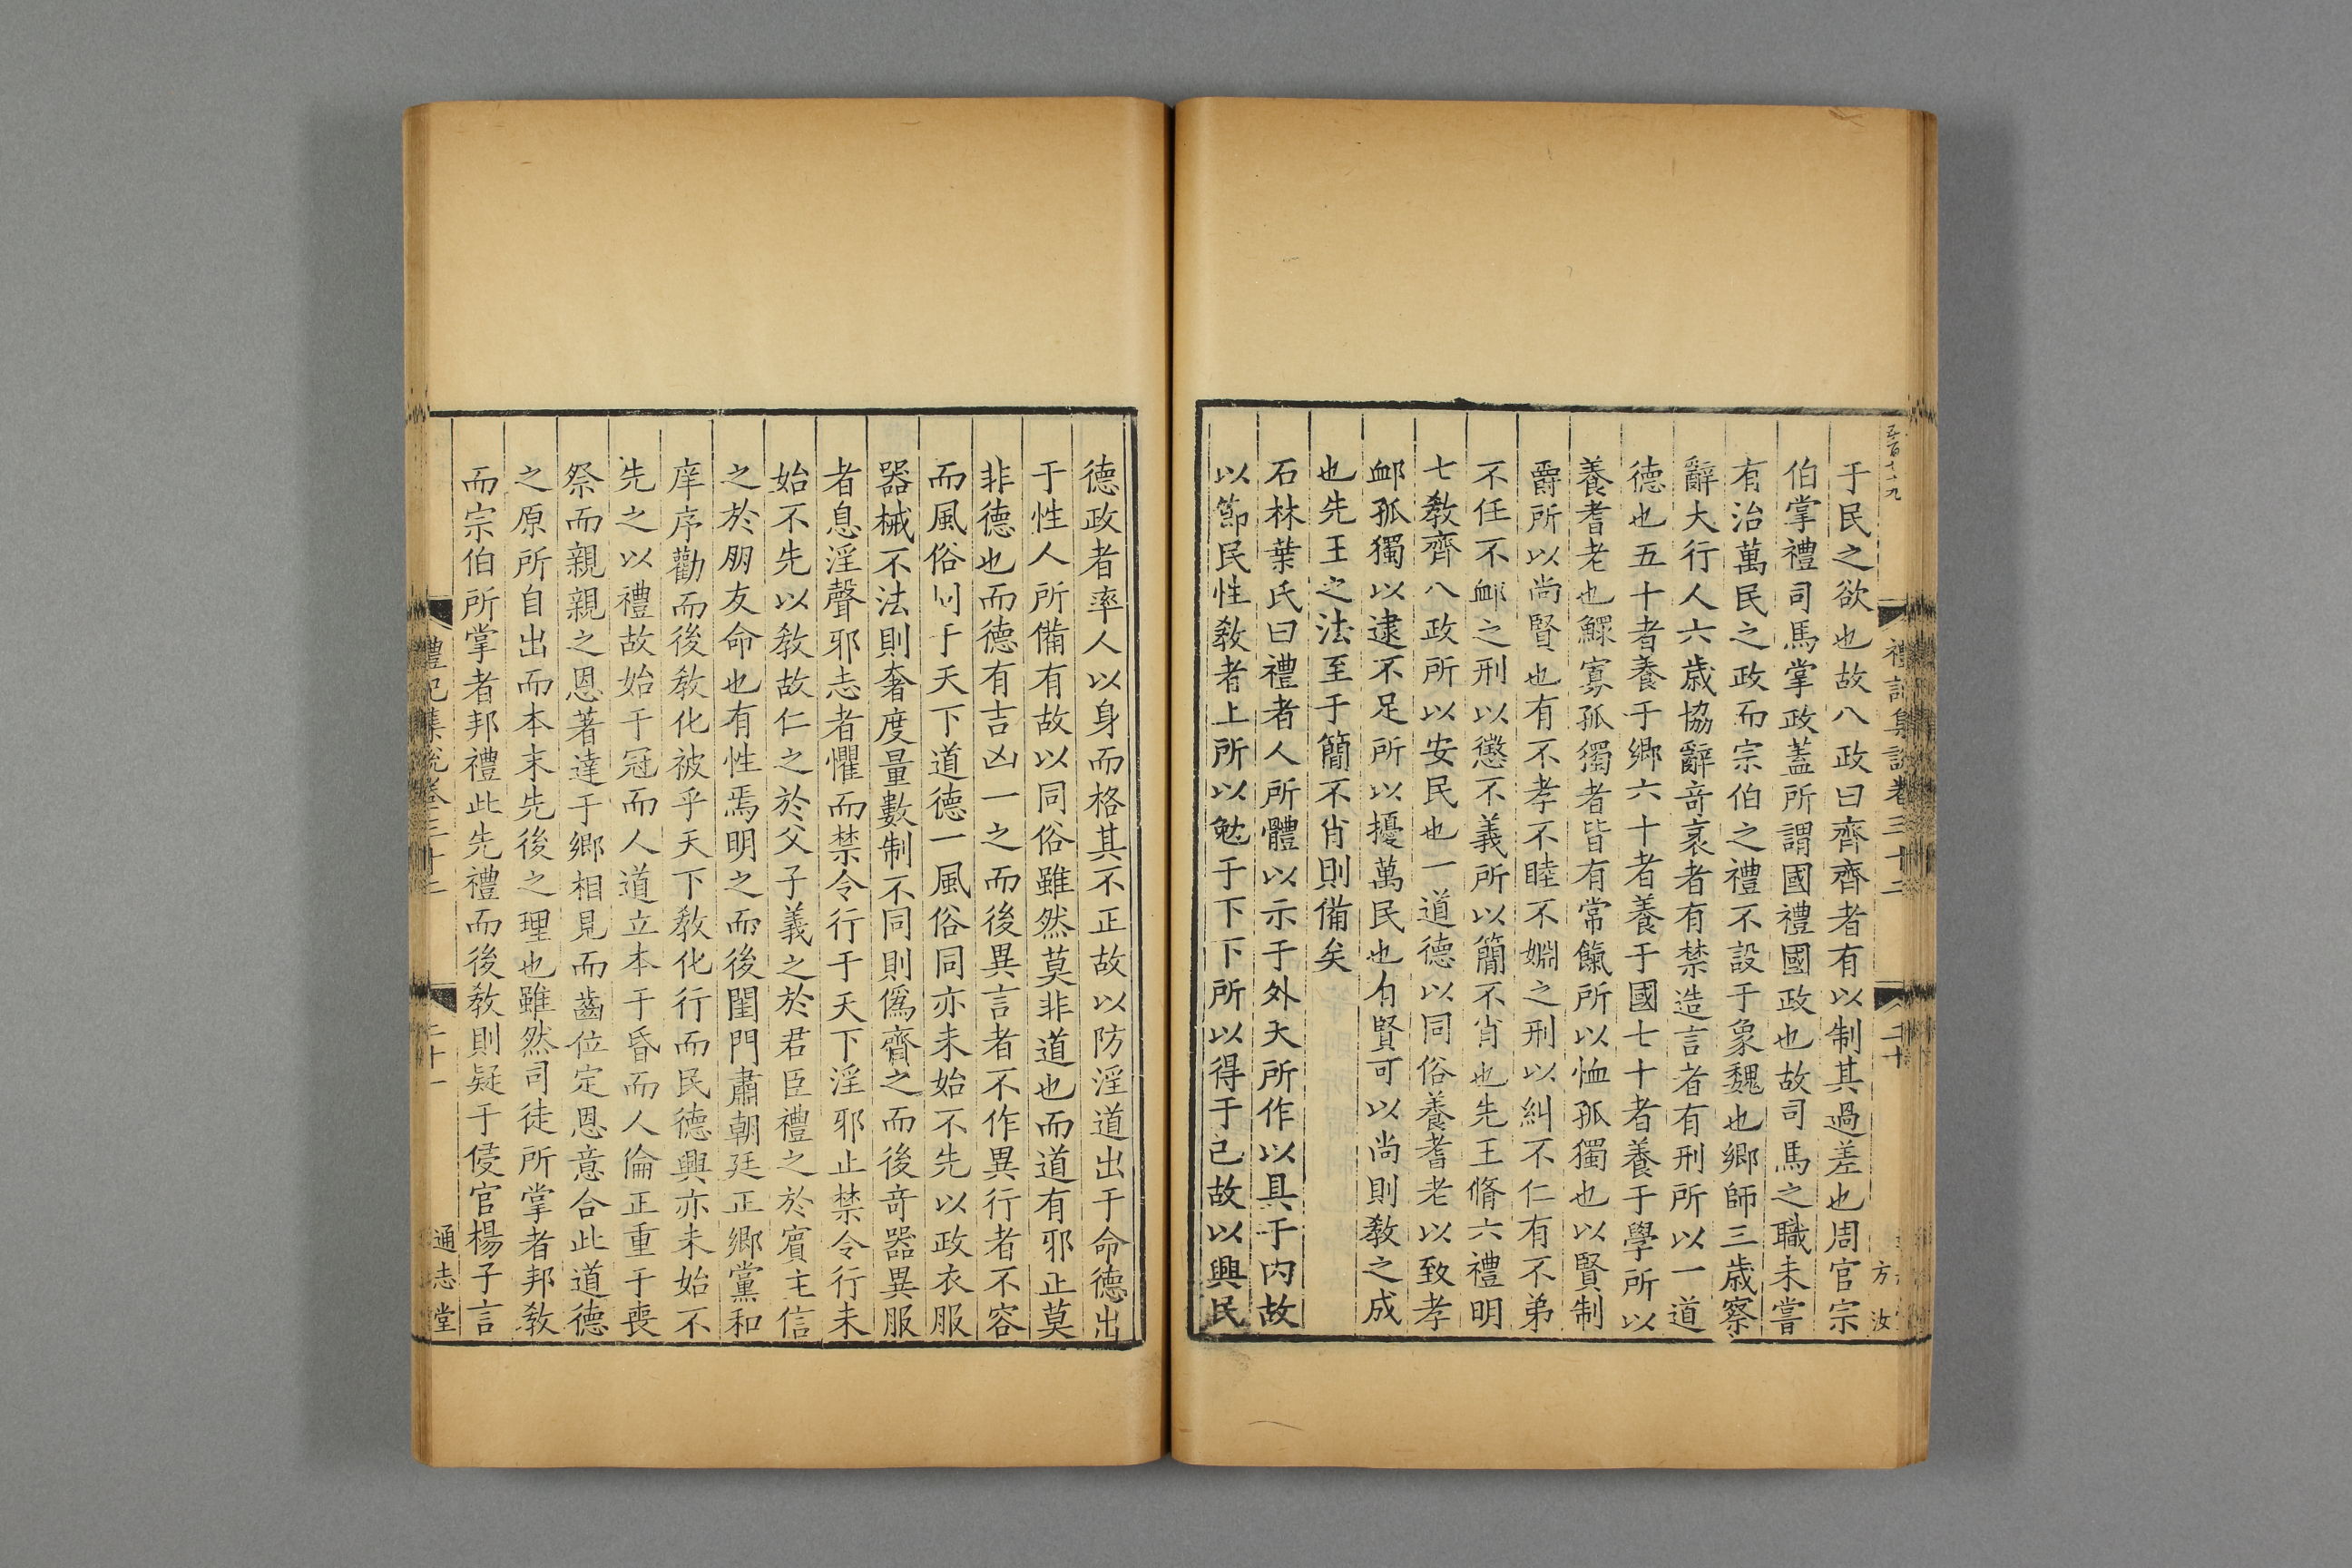 于民之欲也故八政曰齊齊者有以制其過差也周官宗
伯掌禮司馬掌政蓋所謂國禮國政也故司馬之職未嘗
有治萬民之政而宗伯之禮不設于象魏也鄉師三歲察
辭大行人六歲協辭竒衺者有禁造言者有刑所以一道
德也五十者養于鄉六十者養于國七十者養于學所以
養耆老也鰥寡孤獨者皆有常餼所以恤孤獨也以賢制
爵所以尚賢也有不孝不睦不婣之刑以糾不仁有不弟
不任不䘏之刑以懲不義所以簡不肖也先王脩六禮明
七敎齊八政所以安民也一道德以同俗養耆老以致孝
䘏孤獨以逮不足所以擾萬民也有賢可以尚則敎之成
也先王之法至于簡不肖則備矣
石林葉氏曰禮者人所體以示于外天所作以具于内故
以節民性敎者上所以勉于下下所以得于己故以興民
禮記集說卷三十二
二十
方汝
德政者率人以身而格其不正故以防淫道出于命德出
于性人所備有故以同俗雖然莫非道也而道有邪正莫
非德也而德有吉凶一之而後異言者不作異行者不容
而風俗同于天下道德一風俗同亦未始不先以政衣服
器械不法則奢度量數制不同則僞齊之而後竒器異服
者息淫聲邪志者懼而禁令行于天下淫邪止禁令行未
始不先以敎故仁之於父子義之於君臣禮之於賓主信
之於朋友命也有性焉明之而後閨門肅朝廷正鄉黨和
庠序勸而後敎化被乎天下敎化行而民德興亦未始不
先之以禮故始于冠而人道立本于昏而人倫正重于喪
祭而親親之恩著達于鄉相見而齒位定恩意合此道德
之原所自出而本末先後之理也雖然司徒所掌者邦敎
而宗伯所掌者邦禮此先禮而後敎則疑于侵官楊子言
禮記集說卷三十二
二十一
通志堂